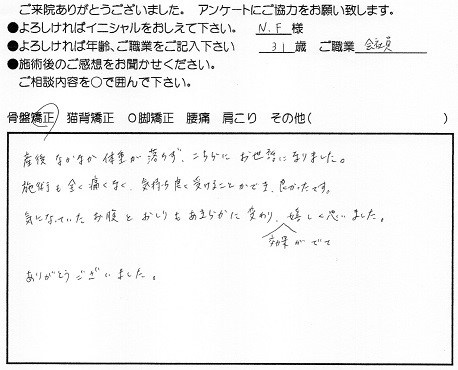 ご来院ありがとうございました。 アンケートにご協力をお願い致します。
●よろしければイニシャルをおしえて下さい。 N.F 様
●よろしければ年齢、ご職業をご記入下さい 31 歳 ご職業 会社員
●施術後のご感想をお聞かせください。
ご相談内容を○で囲んで下さい。
骨盤矯正 猫背矯正 O脚矯正 腰痛 肩こり その他( )
産後なかなか体重が落ちず、こちらにお世話になりました。
施術も全く痛くなく、気持ち良く受けることができ、良かったです。
気になっていたお腹とおしりもあきらかに変わり、嬉しく思いました。
効果がでて
ありがとうございました。